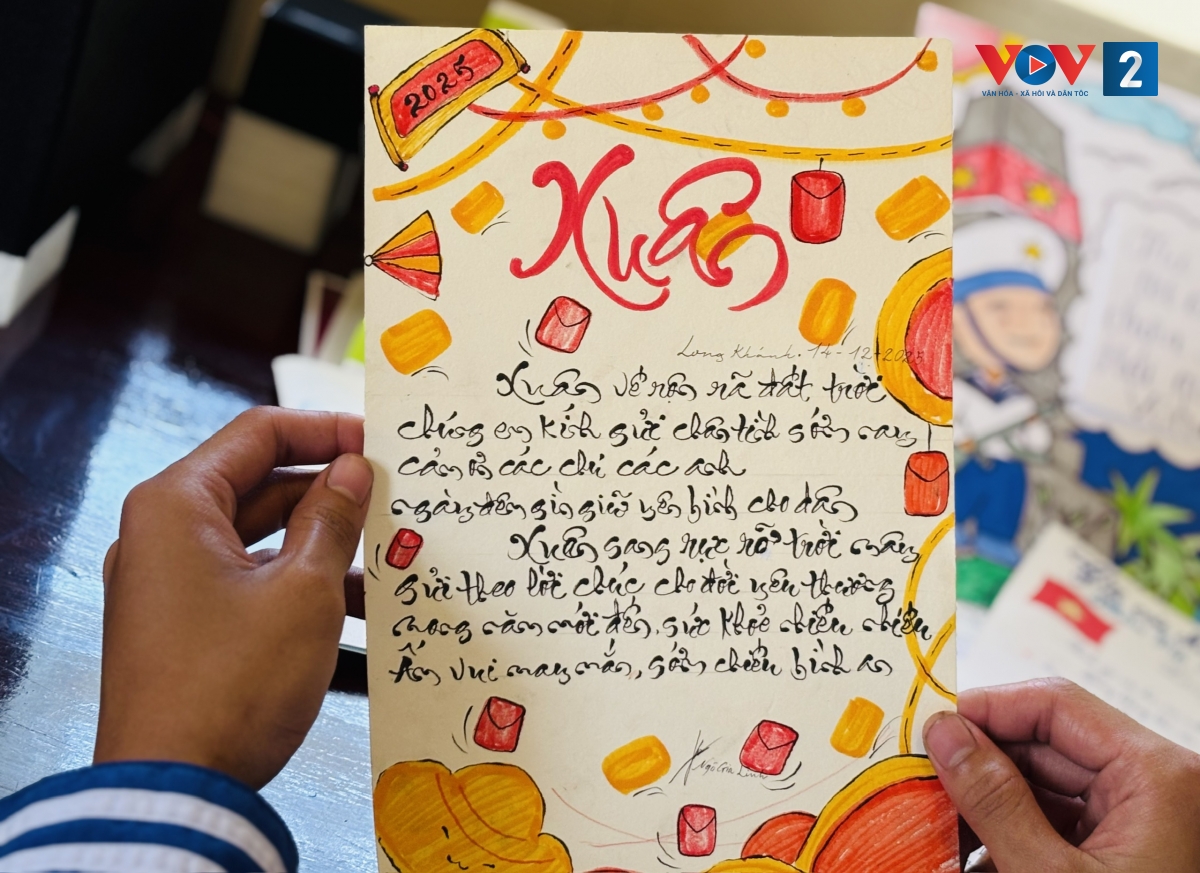 VOV 2
VĂN HÓA - XÃ HỘI VÀ DÂN TỘC
2025
Xuân
Long Khánh. 14-12-2025
Xuân về rộn rã đất trời
chúng em kính gửi chân tình sớm nay
cảm ơn các chú các anh
ngày đêm gìn giữ yên bình cho dân
Xuân sang rực rỡ trời mây
gửi theo lời chúc cho đời yêu thương
mong năm mới đến, sức khoẻ nhiều nhiều
Ấm vui may mắn, sớm chiều bình an
Ngô Gia Linh